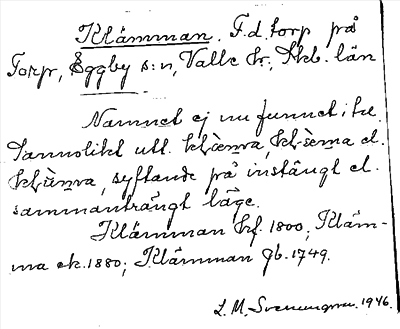 Klämman. F.d. torp på
Torp, Eggby s:n, Valle hd., Skb. län
Namnet ej nu funnet i tal.
Sannolikt utt.
syftande på instängt el.
sammanträngt läge.
Klämman hf. 1800; Kläm-
ma ek. 1880; Klämman gb. 1749.
L. M. Svenungsson. 1946.